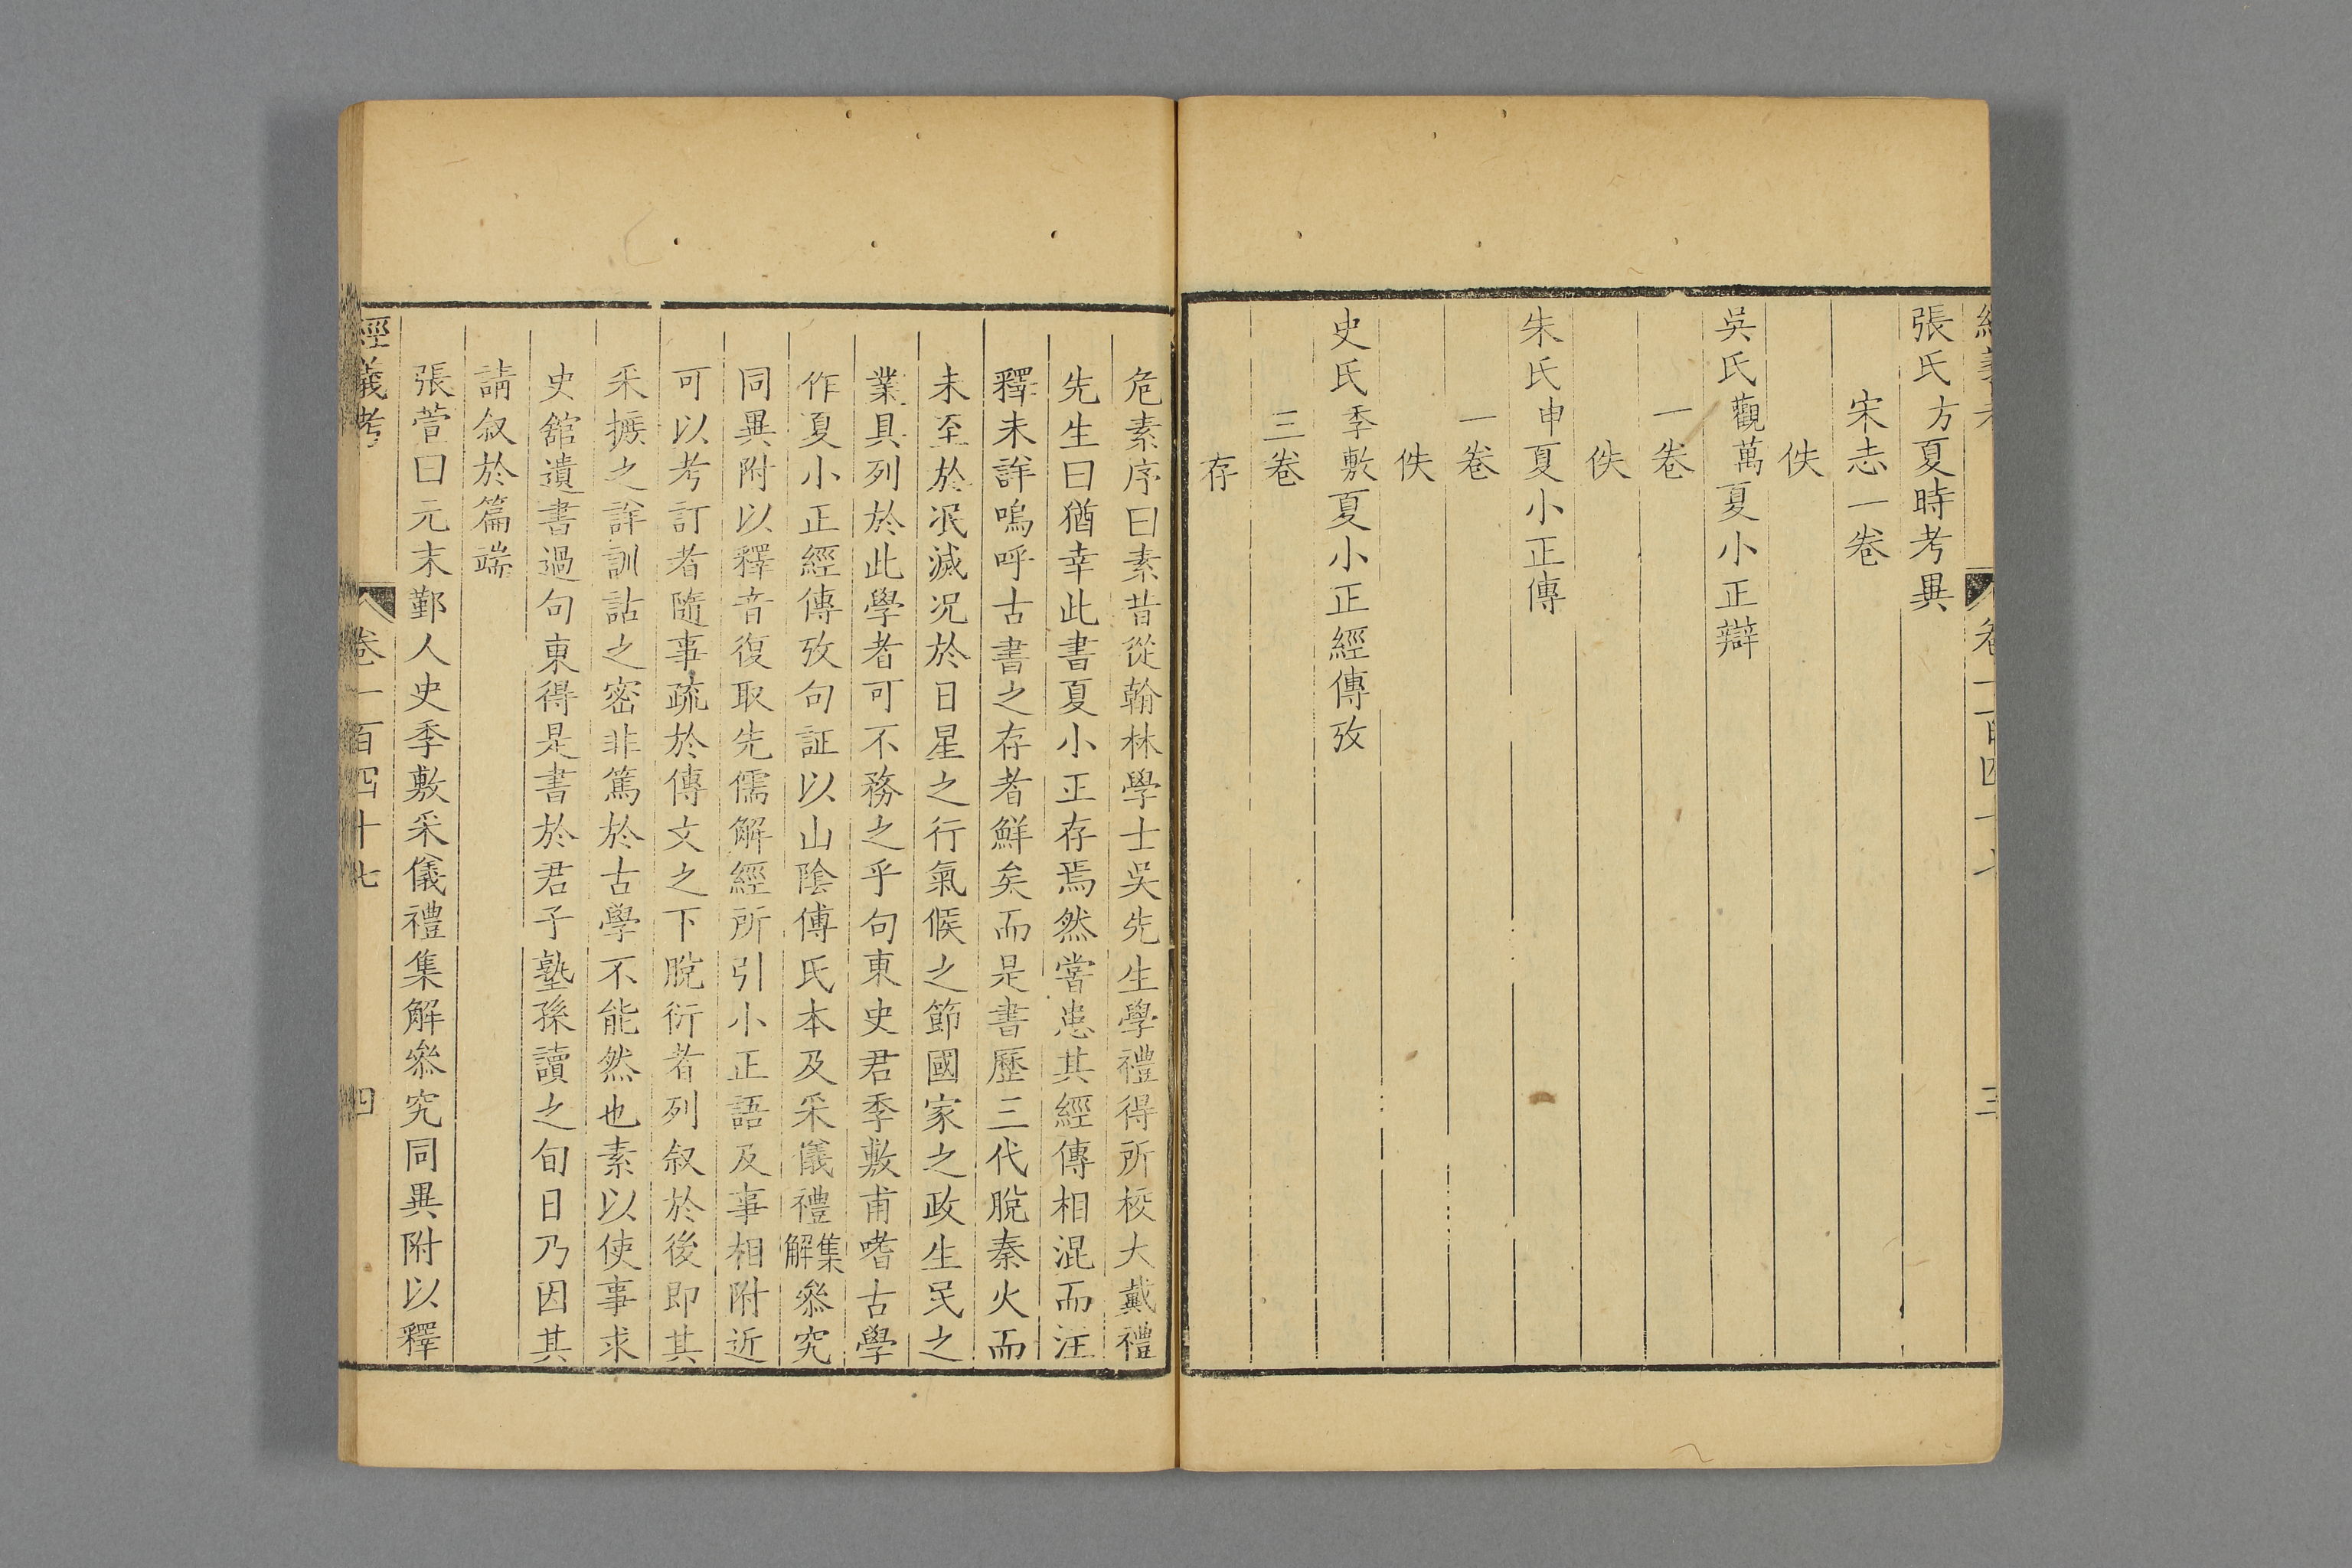 張氏方夏時考異
宋志一卷
佚
吳氏觀萬夏小正辯
一卷
佚
朱氏申夏小正傳
一卷
佚
史氏季敷夏小正經傳攷
三卷
存
危素序曰素昔從翰林學士吳先生學禮得所校大戴禮
先生曰猶幸此書夏小正存焉然嘗患其經傳相混而注
釋未詳嗚呼古書之存者鮮矣而是書歷三代脫秦火而
未至於泯滅况於日星之行氣候之節國家之政生民之
業具列於此學者可不務之乎句東史君季敷甫嗜古學
作夏小正經傳攷句証以山陰傅氏本及采儀禮集解叅究
同異附以釋音復取先儒解經所引小正語及事相附近
可以考訂者隨事疏於傳文之下脫衍者列叙於後即其
采摭之詳訓詁之密非篤於古學不能然也素以使事求
史舘遺書過句東得是書於君子塾孫讀之旬日乃因其
請叙於篇端
張萱曰元末鄞人史季敷采儀禮集解叅究同異附以釋
經義考 卷一百四十七 四